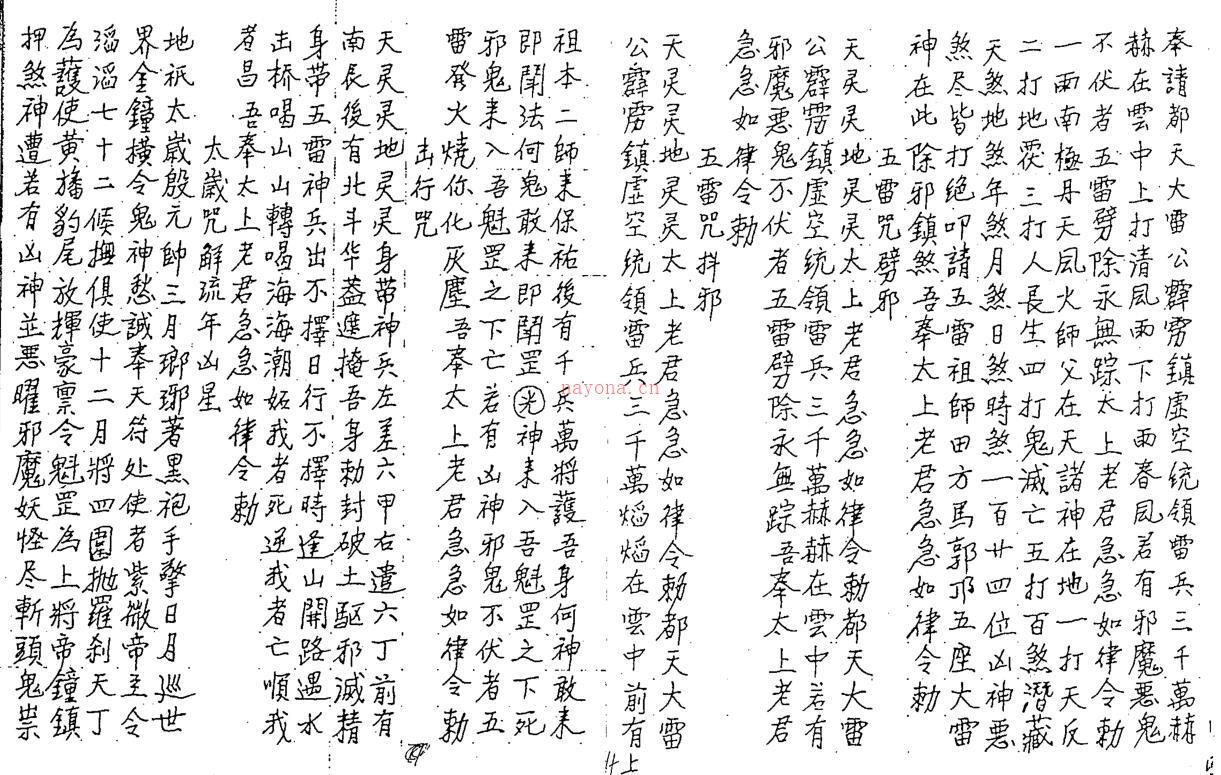 奉請都天大雷公霹雳鎮虛空统領雷兵三千萬赫
赫在雲中上打清風雨下打雨春風若有邪魔惡鬼
不伏者五雷劈除永無踪太上老君急急如律令勅
一雨南極丹天風火師父在天諸神在地一打天反
二打地霒三打人長生四打鬼滅亡五打百煞潛藏
天煞地煞年煞月煞日煞時煞一百廿四位凶神悪
煞尽皆打绝叩請五雷祖師田方馬郭邓五座大雷
神在此除邪鎮煞吾奉太上老君急急如律令勅
五雷咒劈邪
天灵灵地灵灵太上老君急急如律令勅都天大雷
公霹雳鎮虛空统領雷兵三千萬赫赫在雲中若有
邪魔悪鬼不伏者五雷劈除永無踪吾奉太上老君
急急如律令勅
五雷咒抖邪
天灵灵地灵灵太上老君急急如律令勅都天大雷
公霹雳鎮虛空统領雷兵三千萬焰焰在雲中前有
祖本二師来保祐後有千兵萬將護吾身何神敢来
即閗法何鬼敢来即閗罡光神来入吾魁罡之下死
邪鬼来入吾魁罡之下亡若有凶神邪鬼不伏者五
雷發火燒你化灰塵吾奉太上老君急急如律令勅
出行咒
天灵灵地灵灵身带神兵左差六甲右遣六丁前有
南辰後有北斗华盖遮掩吾身勅封破土駆邪滅精
身带五雷神兵出不擇日行不擇時逢山開路遇水
出桥喝山山轉喝海海潮妬我者死逆我者亡順我
者昌吾奉太上老君急急如律令勅
太歲咒解流年凶星
地祇太歲殷元帥三月瑯琊著黑袍手擎日月巡世
界金鐘横令鬼神愁誠奉天符处使者紫微帝主令
滔滔七十二候撫俱使十二月將四圍拋羅刹天丁
為護使黄旛豹尾放揮豪禀令魁罡為上將帝鐘鎮
押煞神遭若有凶神並悪曜邪魔妖怪尽斬頭鬼祟
nayona.cn
廿上